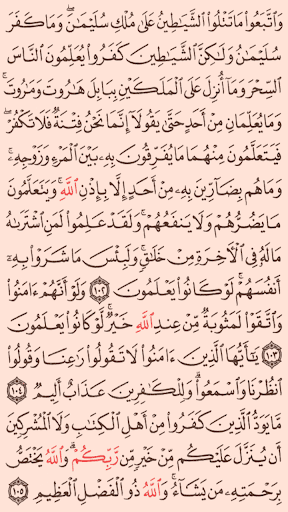 وَٱتَّبَعُوا۟ مَا تَتْلُوا۟ ٱلشَّيَٰطِينُ عَلَىٰ مُلْكِ سُلَيْمَٰنَ ۖ وَمَا كَفَرَ
سُلَيْمَٰنُ وَلَٰكِنَّ ٱلشَّيَٰطِينَ كَفَرُوا۟ يُعَلِّمُونَ ٱلنَّاسَ
ٱلسِّحْرَ وَمَآ أُنزِلَ عَلَى ٱلْمَلَكَيْنِ بِبَابِلَ هَٰرُوتَ وَمَٰرُوتَ ۚ
وَمَا يُعَلِّمَانِ مِنْ أَحَدٍ حَتَّىٰ يَقُولَآ إِنَّمَا نَحْنُ فِتْنَةٌ فَلَا تَكْفُرْ ۖ
فَيَتَعَلَّمُونَ مِنْهُمَا مَا يُفَرِّقُونَ بِهِۦ بَيْنَ ٱلْمَرْءِ وَزَوْجِهِۦ ۚ
وَمَا هُم بِضَآرِّينَ بِهِۦ مِنْ أَحَدٍ إِلَّا بِإِذْنِ ٱللَّهِ ۚ وَيَتَعَلَّمُونَ
مَا يَضُرُّهُمْ وَلَا يَنفَعُهُمْ ۚ وَلَقَدْ عَلِمُوا۟ لَمَنِ ٱشْتَرَىٰهُ
مَا لَهُۥ فِى ٱلْءَاخِرَةِ مِنْ خَلَٰقٍ ۚ وَلَبِئْسَ مَا شَرَوْا۟ بِهِۦٓ
أَنفُسَهُمْ ۚ لَوْ كَانُوا۟ يَعْلَمُونَ ١٠٢ وَلَوْ أَنَّهُمْ ءَامَنُوا۟
وَٱتَّقَوْا۟ لَمَثُوبَةٌ مِّنْ عِندِ ٱللَّهِ خَيْرٌ ۖ لَّوْ كَانُوا۟ يَعْلَمُونَ
١٠٣ يَٰٓأَيُّهَا ٱلَّذِينَ ءَامَنُوا۟ لَا تَقُولُوا۟ رَٰعِنَا وَقُولُوا۟
ٱنظُرْنَا وَٱسْمَعُوا۟ ۗ وَلِلْكَٰفِرِينَ عَذَابٌ أَلِيمٌ ١٠٤
مَّا يَوَدُّ ٱلَّذِينَ كَفَرُوا۟ مِنْ أَهْلِ ٱلْكِتَٰبِ وَلَا ٱلْمُشْرِكِينَ
أَن يُنَزَّلَ عَلَيْكُم مِّنْ خَيْرٍ مِّن رَّبِّكُمْ ۗ وَٱللَّهُ يَخْتَصُّ
بِرَحْمَتِهِۦ مَن يَشَآءُ ۚ وَٱللَّهُ ذُو ٱلْفَضْلِ ٱلْعَظِيمِ ١٠٥